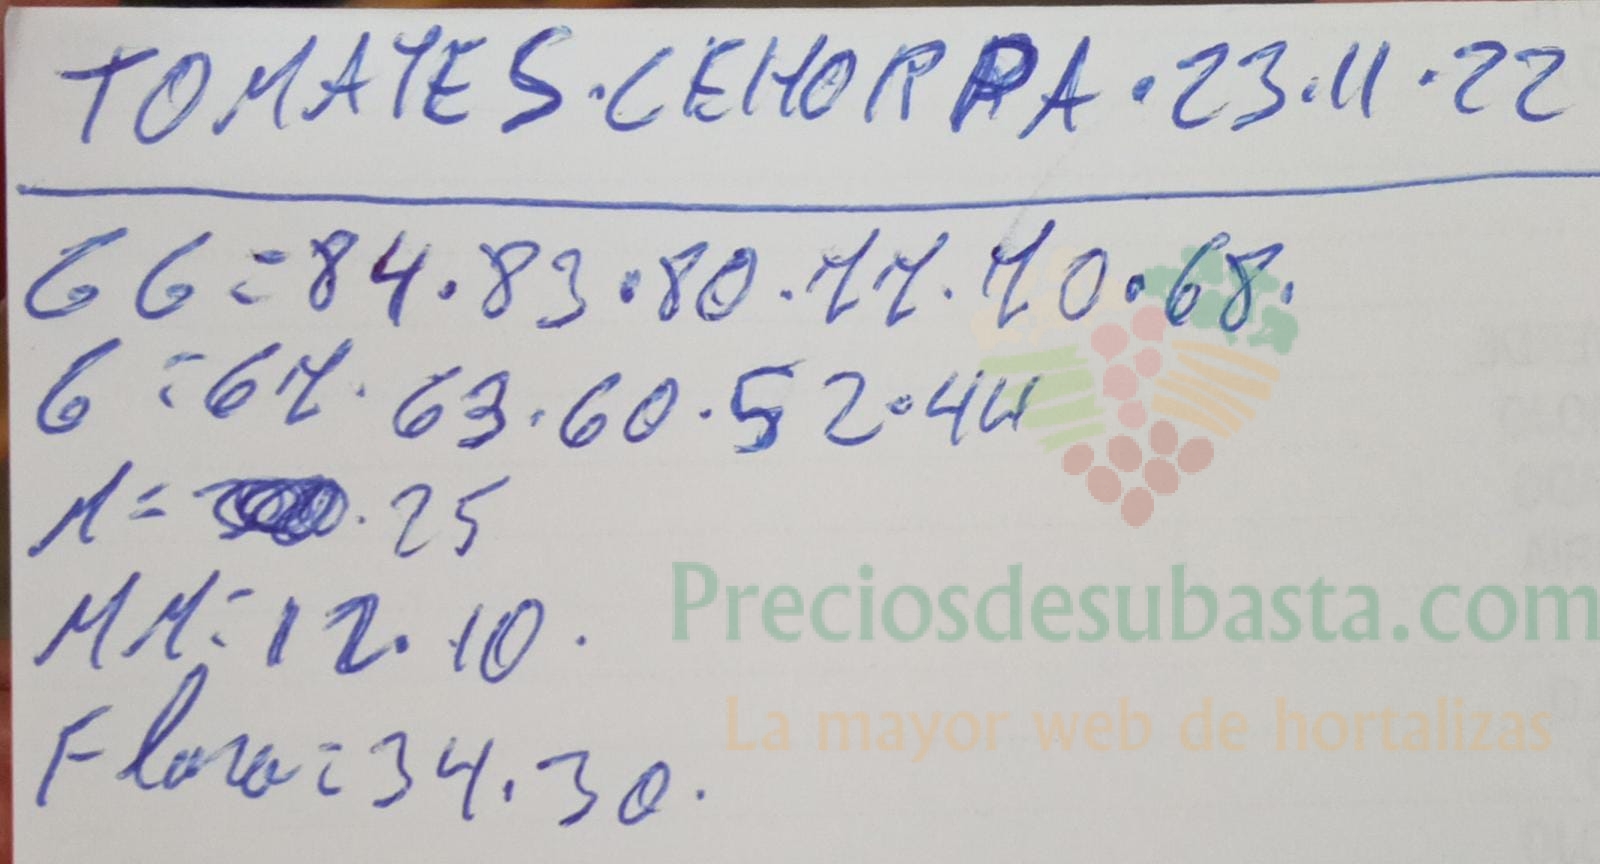 TOMATES.CEHORPA.23.11.22
GG=84.83.80.77.70.68.
G=67.63.60.52.44
M= .25
MM=12.10.
Flora=34.30.
Preciosdesubasta.com
La mayor web de hortalizas